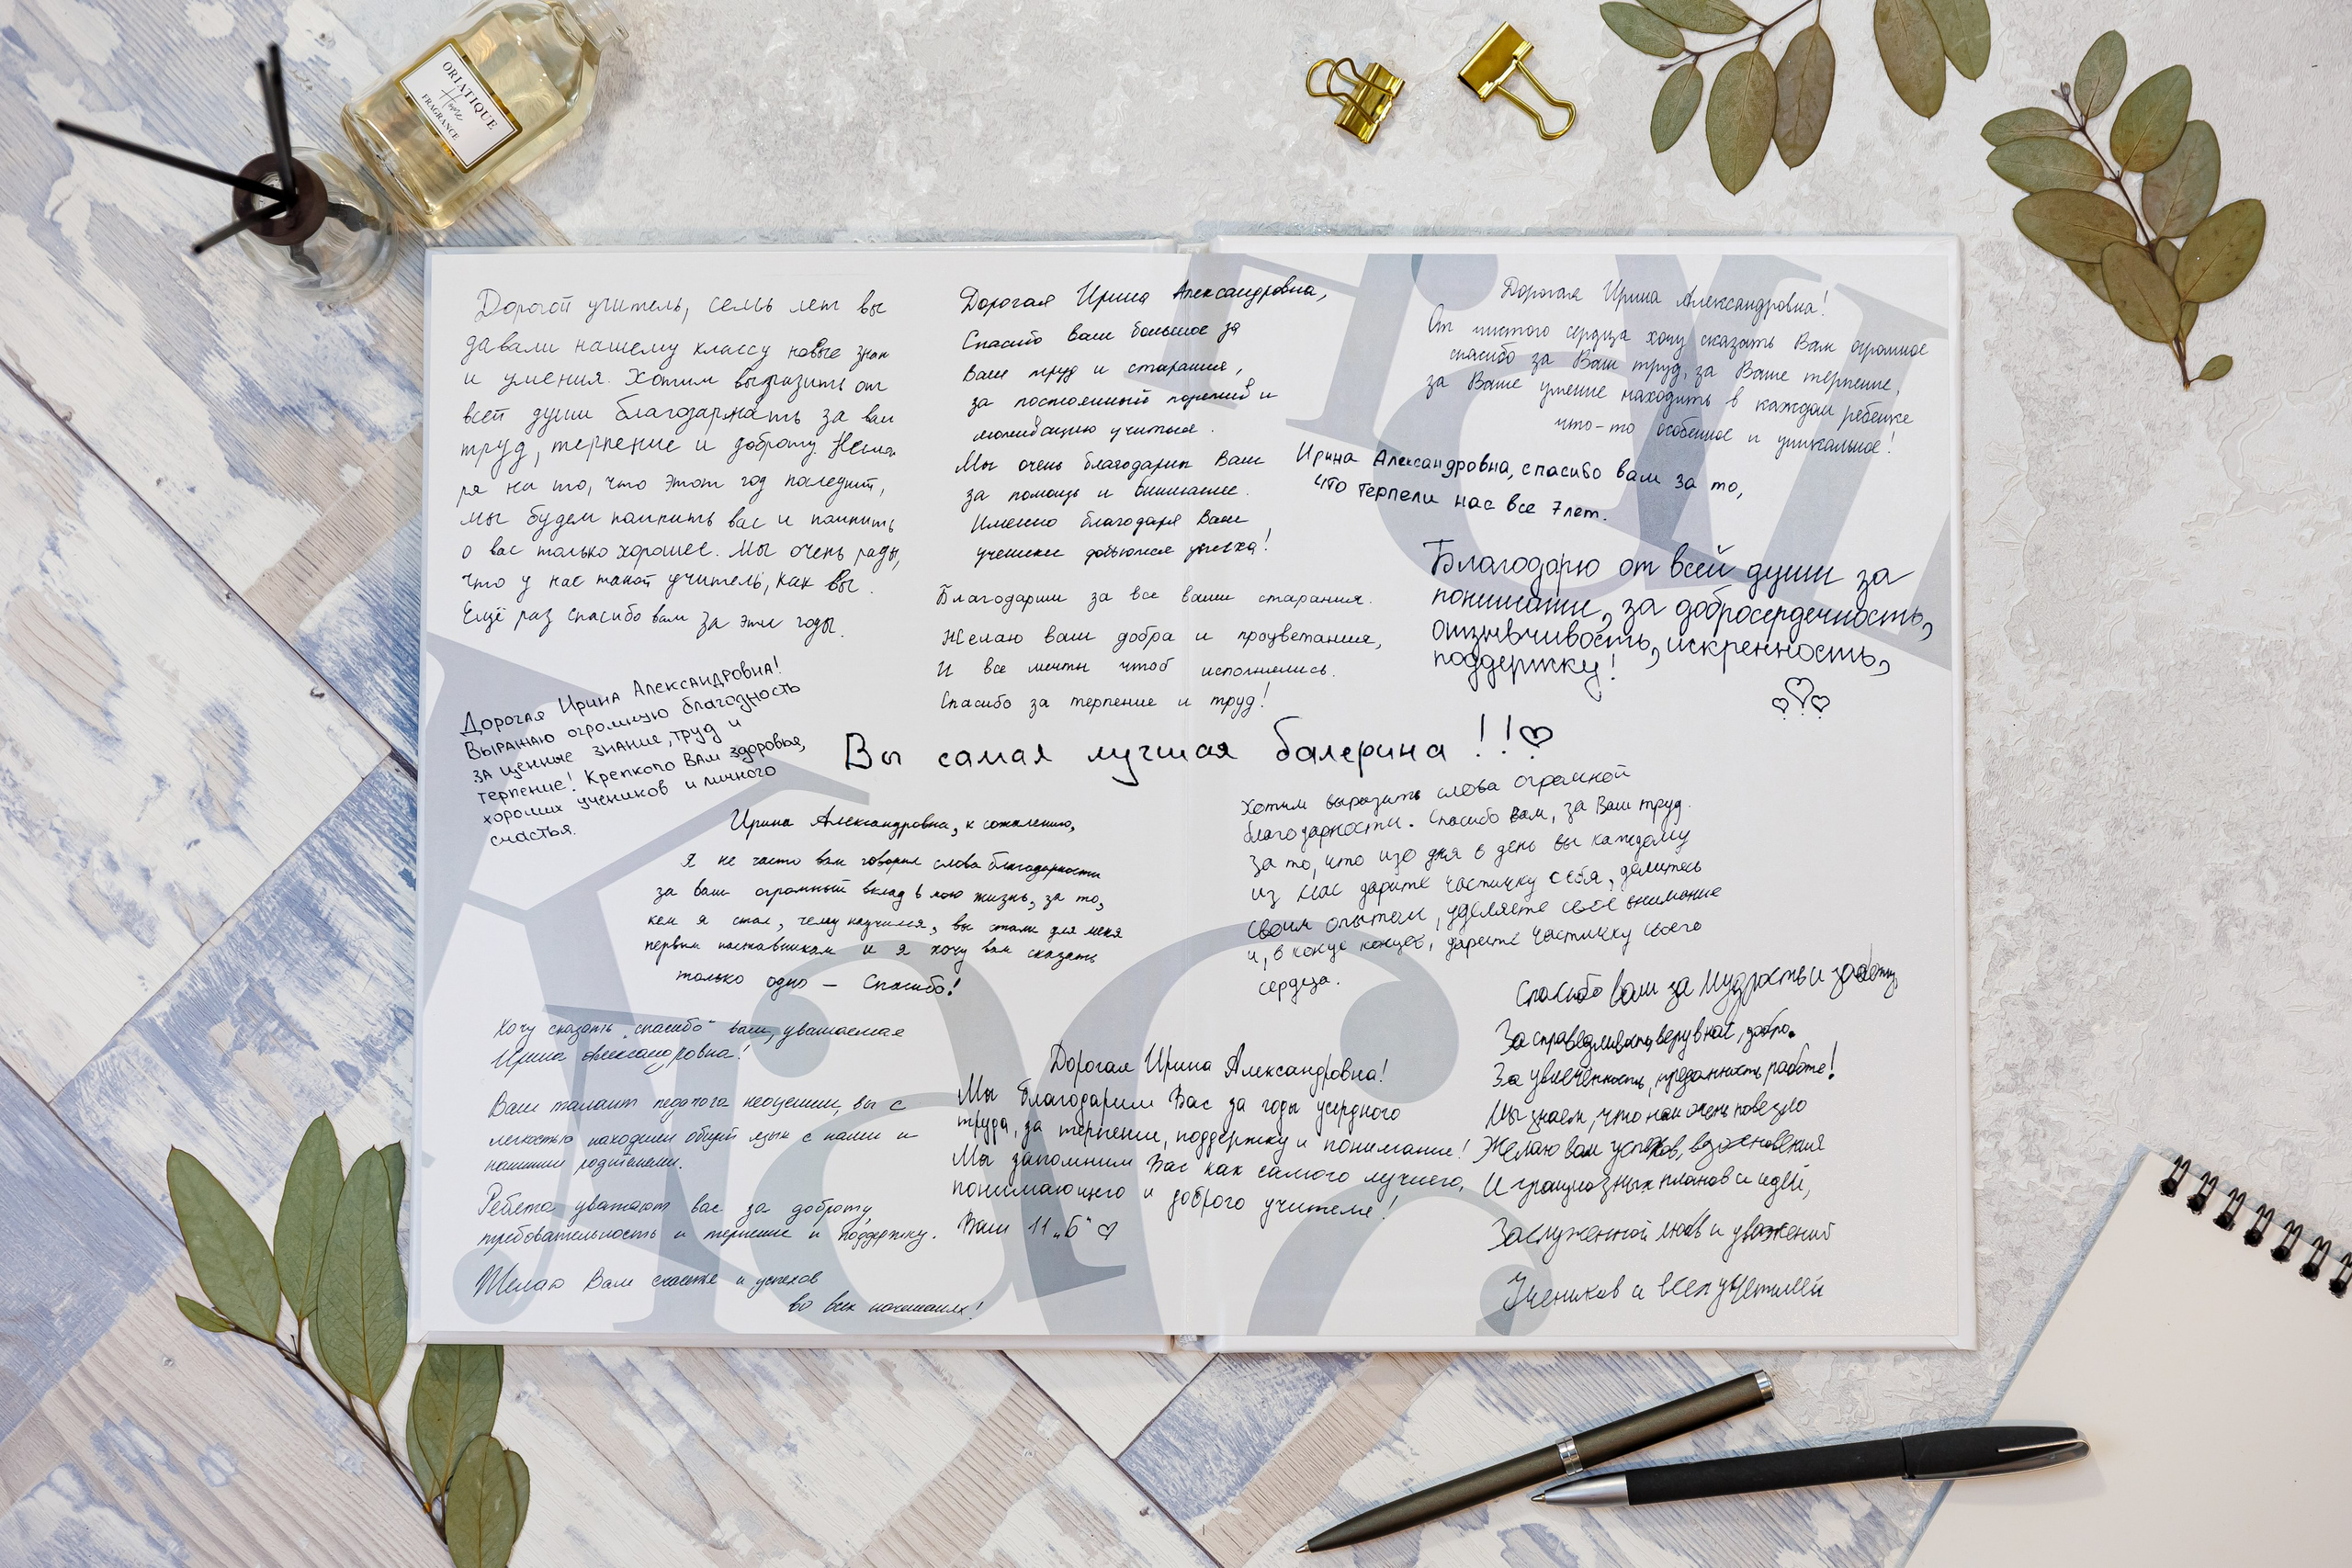 ORIATIQUE
Home
FRAGRANCE
Дорогой учитель, семь лет вы
давали нашему классу новые знан
и умения. Хотим выразить от
всей души благодарнать за ваш
труд, терпение и доброту. Несмо
ря на то, что этот год последний,
мы будем помнить вас и помнить
о вас только хорошее. Мы очень рады,
что у нас такой учитель, как вы.
Ещё раз спасибо вам за эти годы.
Дорогая Ирина Александровна!
Выражаю огромную благодность
за ценные знание, труд и
терпение! Крепкого Вам здоровья,
хороших учеников и личного
счастья.
Дорогая Ирина Александровна,
Спасибо вам большое за
Ваш труд и старания,
за постоянный позитив и
мотивацию учиться.
Мы очень благодарны Вам
за помощь и внимание.
Именно благодаря Вам
ученики добьются успеха!
Благодарим за все ваши старания.
Желаю вам добра и процветания,
И все мечты чтоб исполнились.
Спасибо за терпение и труд!
Дорогая Ирина Александровна!
От чистого сердца хочу сказать Вам огромное
спасибо за Ваш труд, за Ваше терпение,
за Ваше умение находить в каждом ребенке
что-то особенное и уникальное!
Ирина Александровна, спасибо вам за то,
что терпели нас все 7 лет.
Благодарю от всей души за
понимание, за добросердечность,
отзывчивость, искренность,
поддержку!
Вы самая лучшая балерина!!
Ирина Александровна, к сожалению,
я не часто вам говорил слова благодарности
за ваш огромный вклад в мою жизнь, за то,
кем я стал, чему научился, вы стали для меня
первым наставником и я хочу вам сказать
только одно — Спасибо!
Хотим выразить слова огромной
благодарности. Спасибо вам, за Ваш труд.
За то, что изо дня в день вы каждому
из нас дарите частичку себя, делитесь
своим опытом, уделяете своё внимание
и, в конце концов, дарите частичку своего
сердца.
Хочу сказать "спасибо" вам, уважаемая
Ирина Александровна!
Ваш талант педагога неоценим, вы с
легкостью находили общий язык с нами и
нашими родителями.
Ребята уважают вас за доброту,
требовательность и терпение и поддержку.
Желаю Вам счастья и успехов
во всех начинаниях!
Дорогая Ирина Александровна!
Мы благодарим Вас за годы усердного
труда, за терпение, поддержку и понимание!
Мы запомним Вас как самого лучшего,
понимающего и доброго учителя!
Ваш 11 „Б"
Спасибо вам за мудрость и заботу,
За справедливость, веру в нас, добро.
За увлечённость, преданность работе!
Мы знаем, что нам очень повезло
Желаю вам успехов, вдохновения
И грациозных планов и идей,
Заслуженной любви и уважений
Учеников и всех учителей